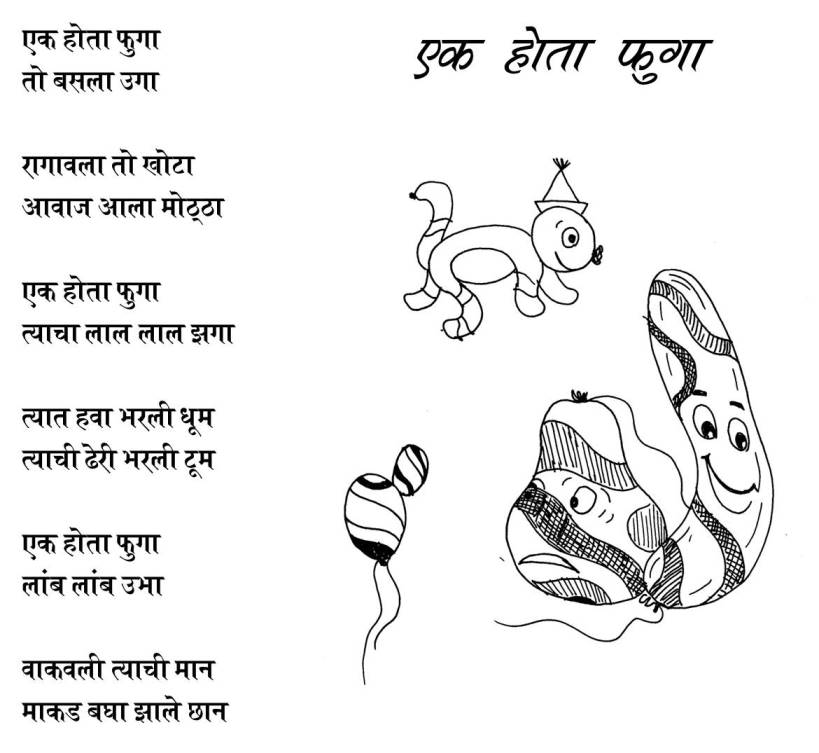 एक होता फुगा
एक होता फुगा
तो बसला उगा
रागावला तो खोटा
आवाज आला मोठ्ठा
एक होता फुगा
त्याचा लाल लाल झगा
त्यात हवा भरली धूम
त्याची ढेरी भरली टूम
एक होता फुगा
लांब लांब उभा
वाकवली त्याची मान
माकड बघा झाले छान